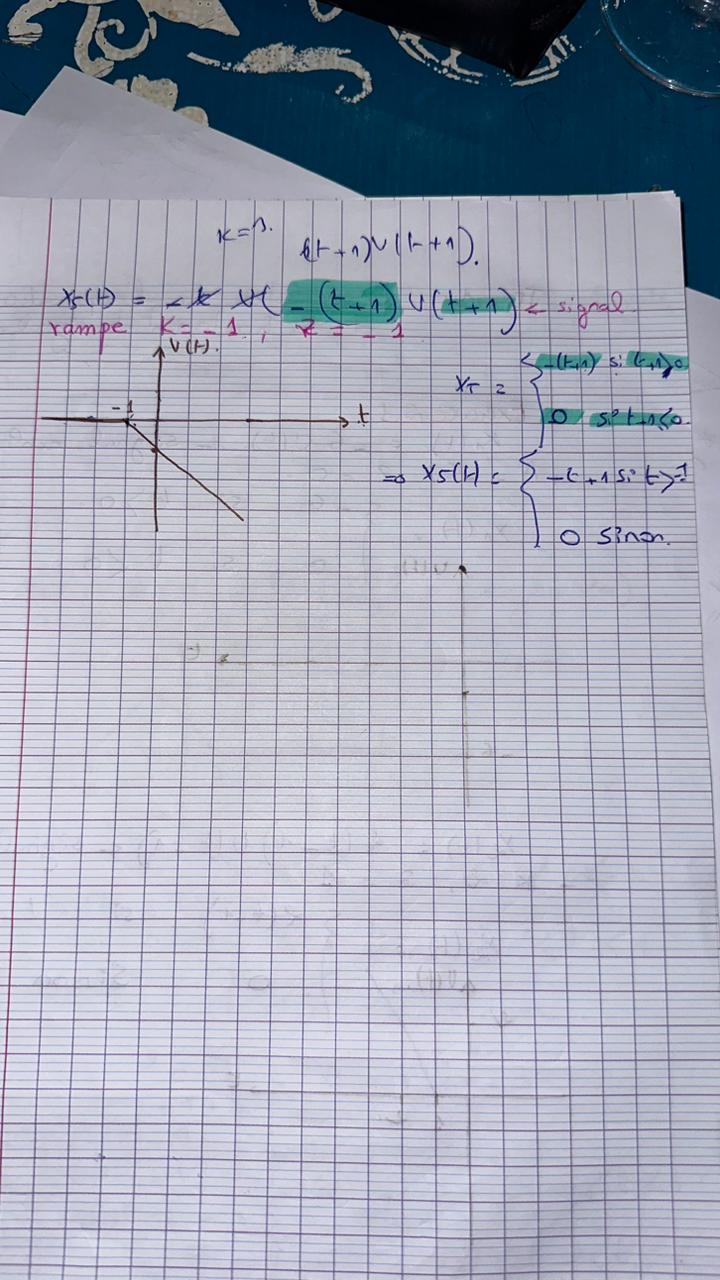 K=1.
(t+1)U(t+1).
x5(t) = -(t+1) U(t+1) ← signal
rampe K=-1, z=-1
U(t).
-1
t
x5 = { -(t+1) si (t+1)>0
0 si t+1<0.
⇒ x5(t) = { -t+1 si t>-1
0 sinon.